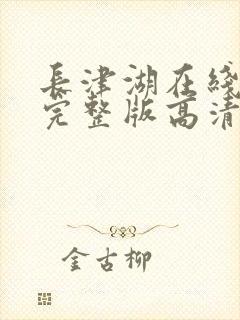 長津湖在綫
完整版高清
金古柳